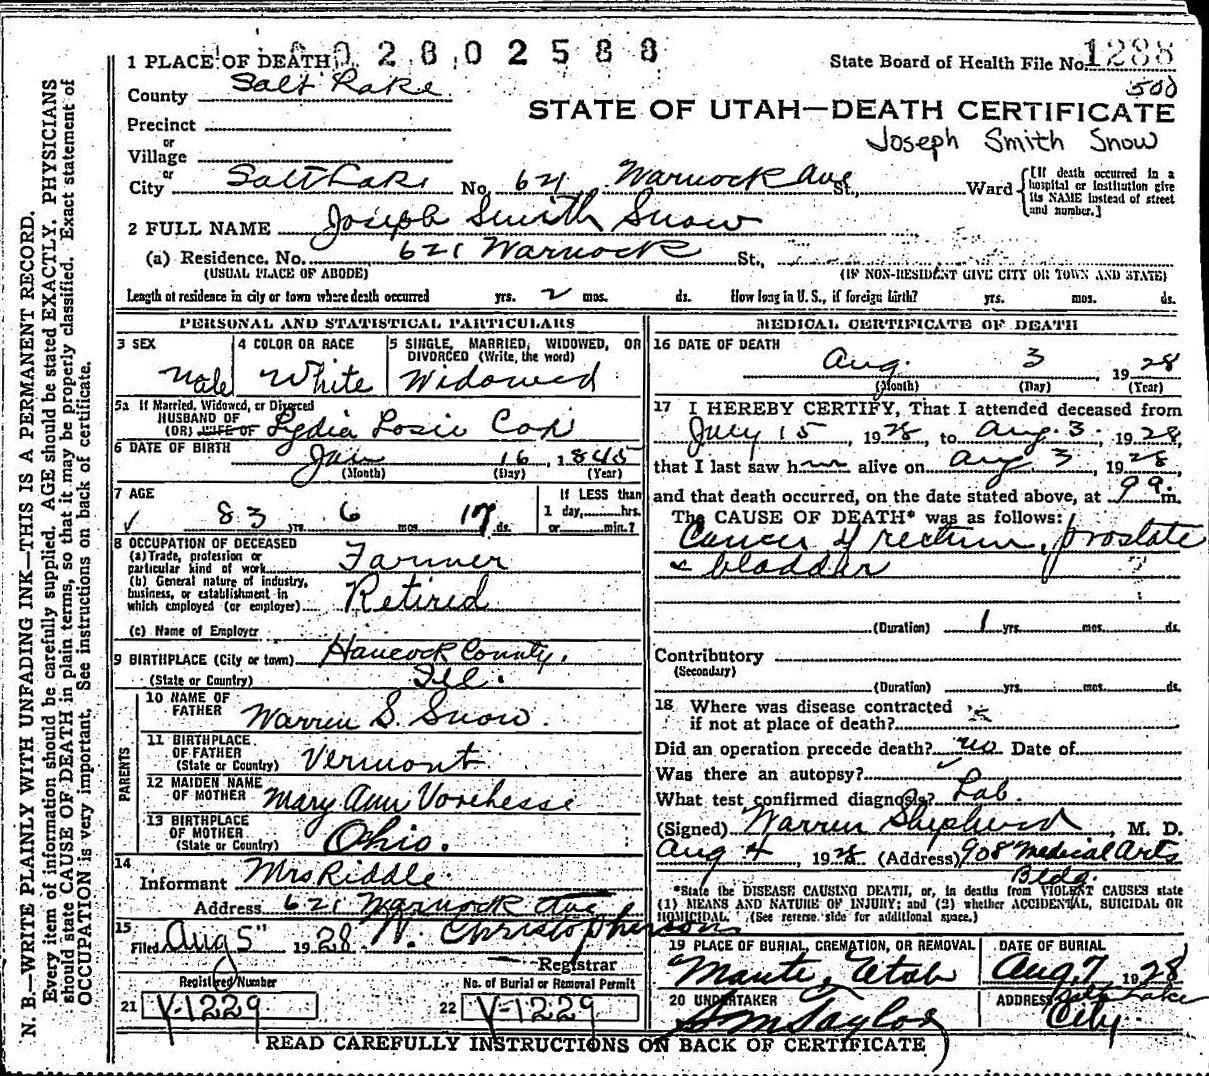 1 PLACE OF DEATH 0 2 8 0 2 5 8 8 State Board of Health File No. 1288
County Salt Lake 500
STATE OF UTAH—DEATH CERTIFICATE
Precinct Joseph Smith Snow
or
Village
or
City Salt Lake No. 621 Warnock Ave St., Ward [If death occurred in a hospital or institution give its NAME instead of street and number.]
2 FULL NAME Joseph Smith Snow
(a) Residence. No. 621 Warnock St.,
(USUAL PLACE OF ABODE) (IF NON-RESIDENT GIVE CITY OR TOWN AND STATE)
Length of residence in city or town where death occurred yrs. 2 mos. ds. How long in U. S., if foreign birth? yrs. mos. ds.
PERSONAL AND STATISTICAL PARTICULARS
3 SEX Male
4 COLOR OR RACE White
5 SINGLE, MARRIED, WIDOWED, OR DIVORCED (Write, the word) Widowed
5a If Married, Widowed, or Divorced
HUSBAND OF
(OR) WIFE OF Lydia Losie Cox
6 DATE OF BIRTH Jan 16, 1845
(Month) (Day) (Year)
7 AGE 83 yrs. 6 mos. 17 ds.
If LESS than
1 day, hrs.
or min.?
8 OCCUPATION OF DECEASED
(a) Trade, profession or
particular kind of work Farmer
(b) General nature of industry,
business, or establishment in
which employed (or employer) Retired
(c) Name of Employer
9 BIRTHPLACE (City or town) Hancock County,
(State or Country) Ill.
PARENTS
10 NAME OF
FATHER Warren S. Snow.
11 BIRTHPLACE
OF FATHER
(State or Country) Vermont
12 MAIDEN NAME
OF MOTHER Mary Ann
13 BIRTHPLACE
OF MOTHER
(State or Country) Ohio.
14
Informant Mrs Riddle
Address 621 Warnock Ave
15
Filed Aug 5" 1928. W. Christopherson
Registrar
Registered Number
21 Y-1229
No. of Burial or Removal Permit
22 Y-1229
MEDICAL CERTIFICATE OF DEATH
16 DATE OF DEATH
Aug. 3 1928
(Month) (Day) (Year)
17 I HEREBY CERTIFY, That I attended deceased from
July 15, 1928, to Aug. 3, 1928,
that I last saw him alive on Aug 3, 1928,
and that death occurred, on the date stated above, at 9 a.m.
The CAUSE OF DEATH* was as follows:
Cancer of rectum, prostate
& bladder
(Duration) 1 yrs. mos. ds.
Contributory
(Secondary)
(Duration) yrs. mos. ds.
18 Where was disease contracted
if not at place of death?
Did an operation precede death? no Date of
Was there an autopsy?
What test confirmed diagnosis? Lab.
(Signed) Warren Shepherd, M. D.
Aug 4, 1928 (Address) 908 Medical Arts
Bldg.
*State the DISEASE CAUSING DEATH, or, in deaths from VIOLENT CAUSES state
(1) MEANS AND NATURE OF INJURY; and (2) whether ACCIDENTAL, SUICIDAL OR
HOMICIDAL. (See reverse side for additional space.)
19 PLACE OF BURIAL, CREMATION, OR REMOVAL
Manti, Utah
DATE OF BURIAL
Aug, 7 1928
20 UNDERTAKER
S M Taylor
ADDRESS Salt Lake
City
READ CAREFULLY INSTRUCTIONS ON BACK OF CERTIFICATE
N. B.—WRITE PLAINLY WITH UNFADING INK—THIS IS A PERMANENT RECORD.
Every item of information should be carefully supplied. AGE should be stated EXACTLY. PHYSICIANS
should state CAUSE OF DEATH in plain terms, so that it may be properly classified. Exact statement of
OCCUPATION is very important. See instructions on back of certificate.